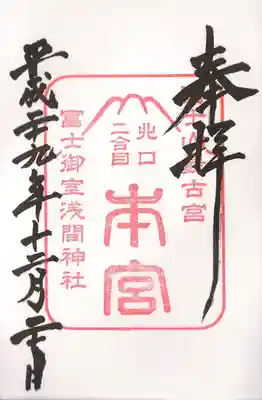 奉拝
古宮
北口
二合目
本宮
富士御室浅間神社
平成二十九年十二月日